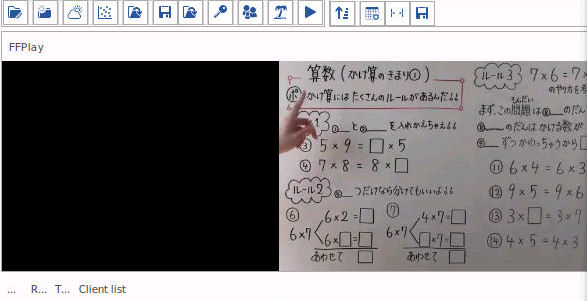 FFPlay
算数(かけ算のきまり①)
ポ かけ算にはたくさんのルールがあるんだ!!
1 ①__と②__を入れかえちゃえ!!
③ 5×9=□×5
④ 7×8=8×□
ルール2 ⑤__つだけなら分けてもいいよ!!
⑥ 6×7 6×2=□
6×□=□
あわせて □
⑦ 6×7 4×7=□
□×7=□
あわせて □
ルール3 7×6=7×
のやり方を
まず、この問題は
もんだい
のだんはかける数が
ずつかわっちゃうから
⑪ 6×4=6×3
⑫ 9×5=9×6
⑬ 3×□=3×7
⑭ 4×5=4×3
... R... T... Client list